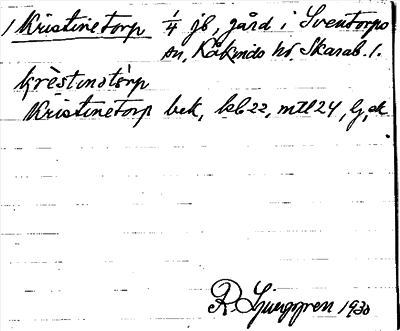 1 Kristinetorp 1/4 jb, gård i Sventorps
sn, Kåkinds hd, Skarab. l.
krèstinatårp
Kristinetorp bek, kb 22, mtl 24, lj, ek
R. Ljunggren 1930